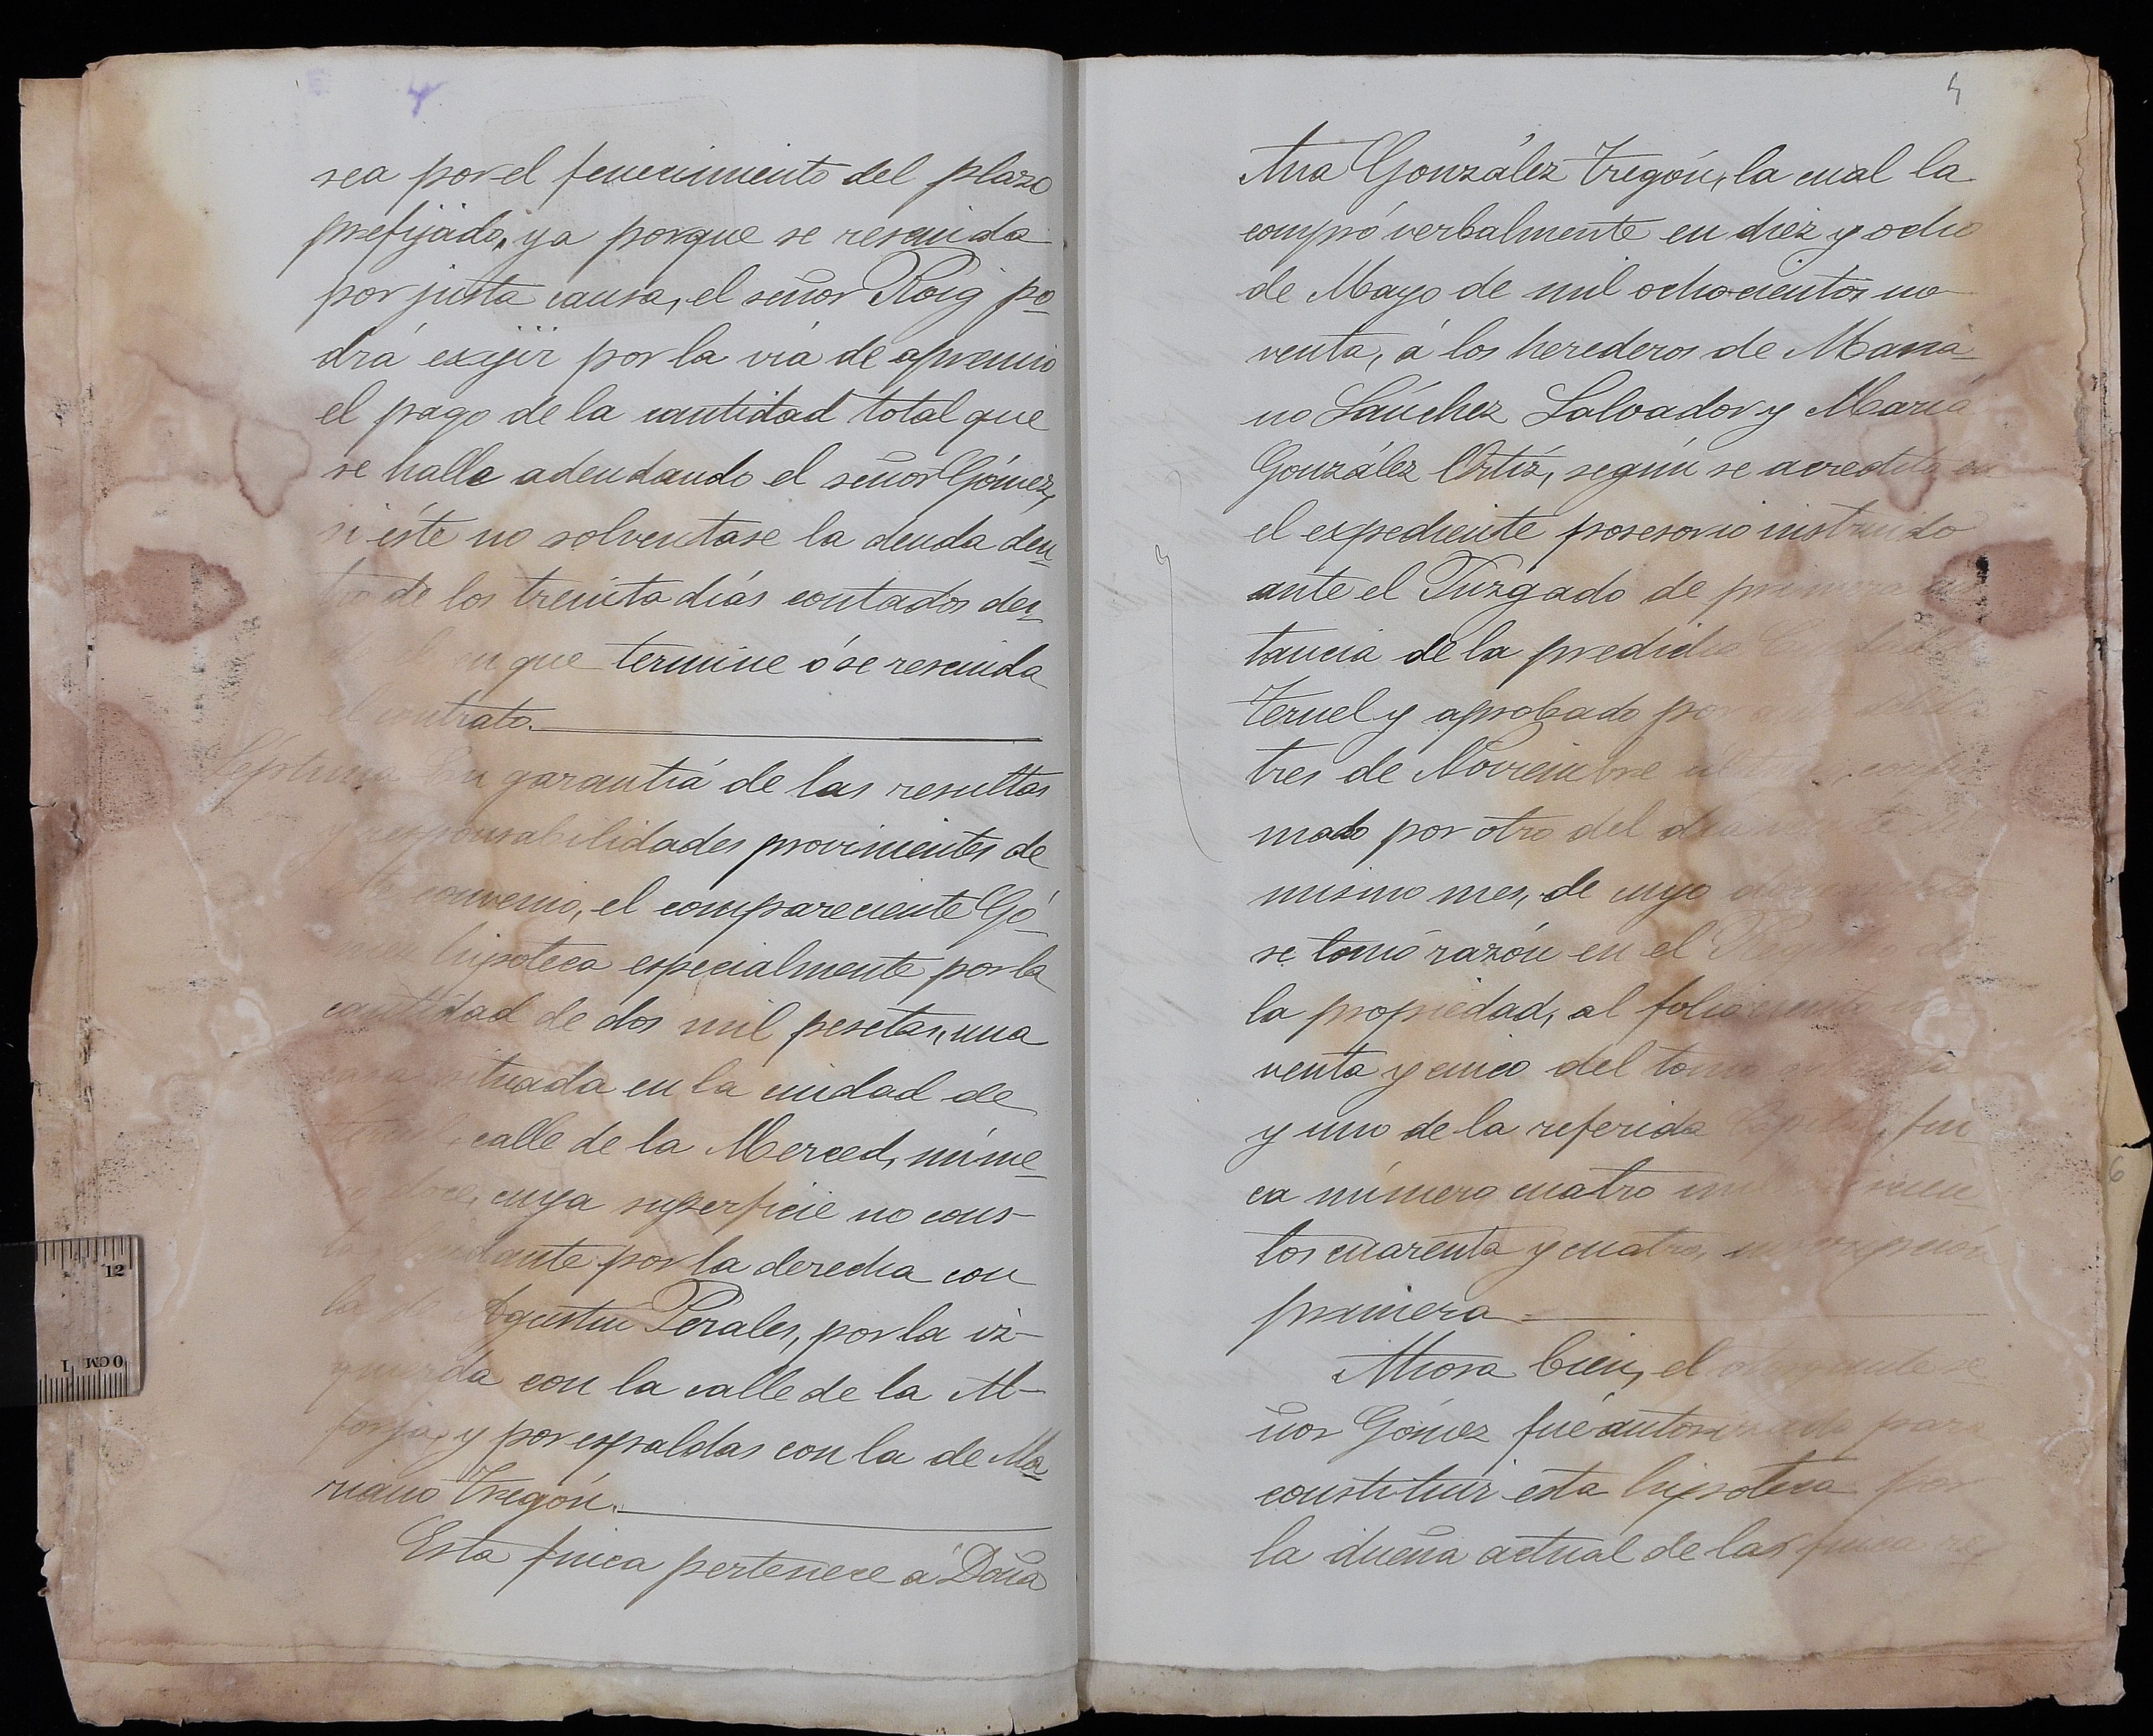 sea por el fenecimiento del plazo
prefijado, ya porque se rescinda
por justa causa, el señor Roig po-
drá exijir por la vía de apremio
el pago de la cantidad total que
se halle adeudando el señor Gómez,
si éste no solventase la deuda den-
tro de los treinta días contados des-
en que termine ó se rescinda
el contrato.
Séptima En garantía de las resultas
y responsabilidades provinientes de
convenio, el compareciente Gó-
mez hipoteca especialmente por la
cantidad de dos mil pesetas, una
casa situada en la ciudad de
calle de la Merced, núme-
ro doce, cuya superficie no cons-
ta, lindante por la derecha con
la de Agustín Perales, por la iz-
quierda con la calle de la Al-
forja, y por espaldas con la de Ma-
riano Tregón.
Esta finca pertenece á Doña
4
Ana González Tregón, la cual la
compró verbalmente en diez y ocho
de Mayo de mil ochocientos no-
venta, á los herederos de Maria-
no Sánchez Salvador y María
González Ortíz, según se acredita en
el expediente posesorio instruido
ante el Juzgado de primera ins-
tancia de la predicha Ciudad de
Teruel y aprobado por
tres de Noviembre último, confir-
mado por otro del día
mismo mes, de cuyo documento
se tomó razón en el Registro de
la propiedad, al folio ciento no-
venta y cinco del tomo
y uno de la referida Capital, fin-
ca número cuatro mil
tos cuarenta y cuatro, inscripción
primera
Ahora bien, el otorgante se-
ñor Gómez fué autorizado para
constituir esta hipoteca por
la dueña actual de las finca
6